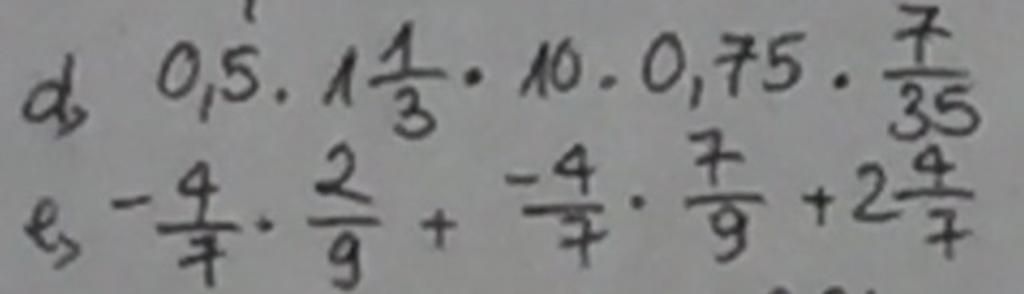 d, 0,5 . 1 1/3 . 10 . 0,75 . 7/35
e, -4/7 . 2/9 + -4/7 . 7/9 + 2 4/7